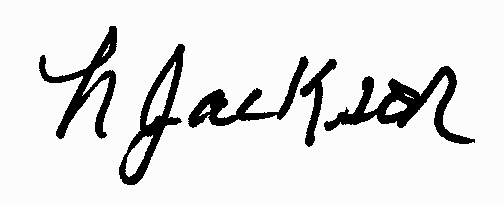 N Jackson